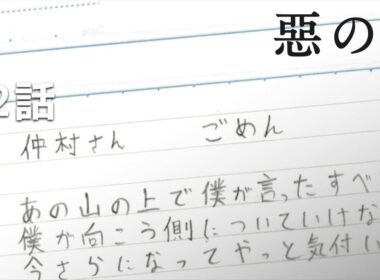 惡の
2話
仲村さん ごめん
あの山の上で僕が言ったすべ
僕が向こう側についていけな
今さらになってやっと気付い